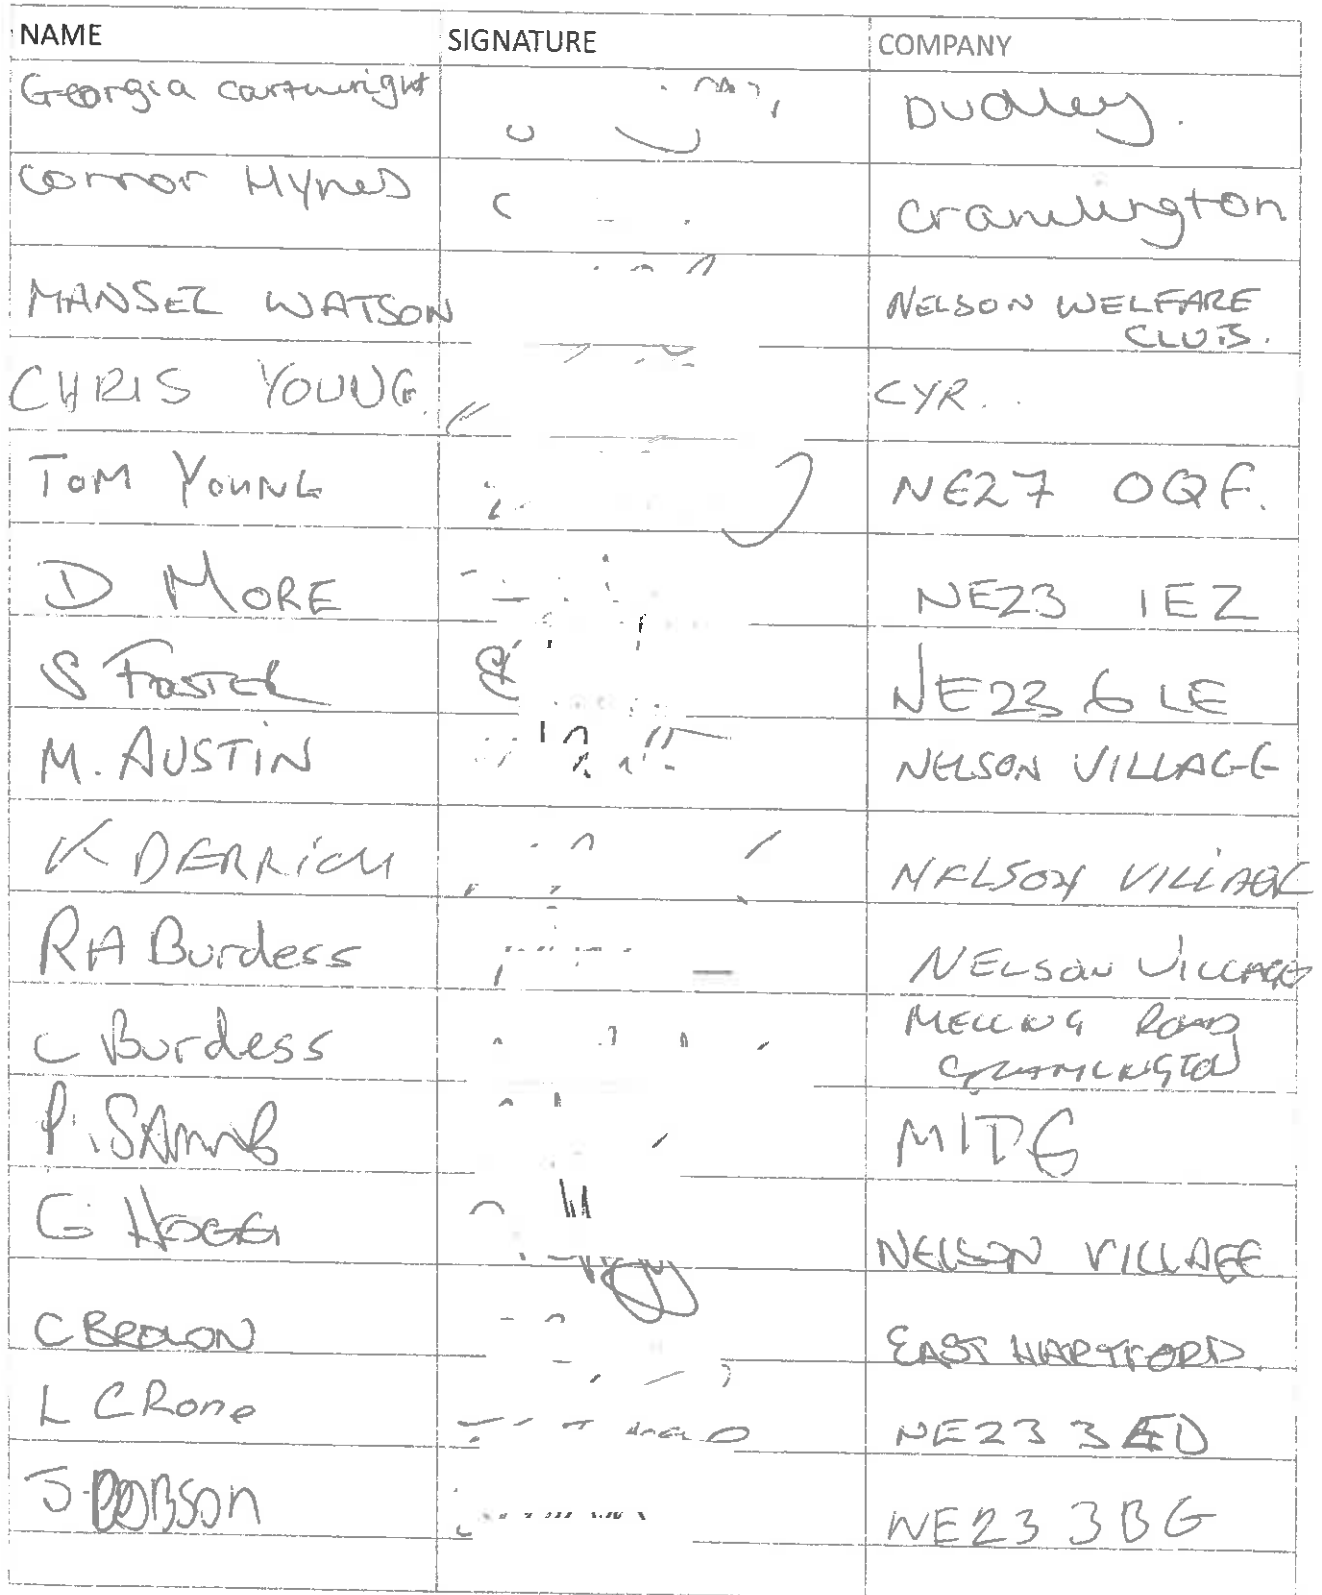 NAME SIGNATURE COMPANY
Georgia cartwright Dudley.
Connor Hynes Cramlington
MANSEL WATSON NELSON WELFARE
CLUB.
CHRIS YOUNG. CYR..
TOM YOUNG NE27 0QF.
D MORE NE23 1EZ
S FOSTER NE23 6LE
M. AUSTIN NELSON VILLAGE
K DERRICK NELSON VILLAGE
RA Burdess NELSON VILLAGE
C Burdess MELLING ROAD
CRAMLINGTON
P. MIDG
G HOGG NELSON VILLAGE
C BROWN EAST HARTFORD.
L CRone NE23 3ED
J-DOBSON NE23 3BG